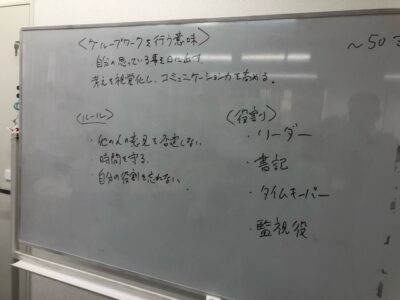 〈グループワークを行う意味〉
自分の思っている事を口に出す。
考えを視覚化し、コミュニケーション力を高める。
〈ルール〉
・他の人の意見を否定しない
・時間を守る。
・自分の役割を忘れない
〈役割〉
・リーダー
・書記
・タイムキーパー
・監視役
～50